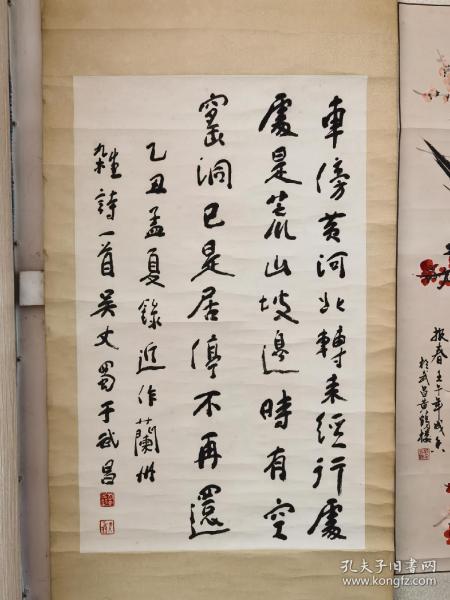 車傍黄河北轉来經行處
處是荒山坡邊時有空
窰洞已是居停不再還
乙丑孟夏錄近作蘭州
雜詩一首吴丈蜀于武昌
报春壬午年
於武昌黄鹤楼
孔夫子旧书网
www.kongfz.com